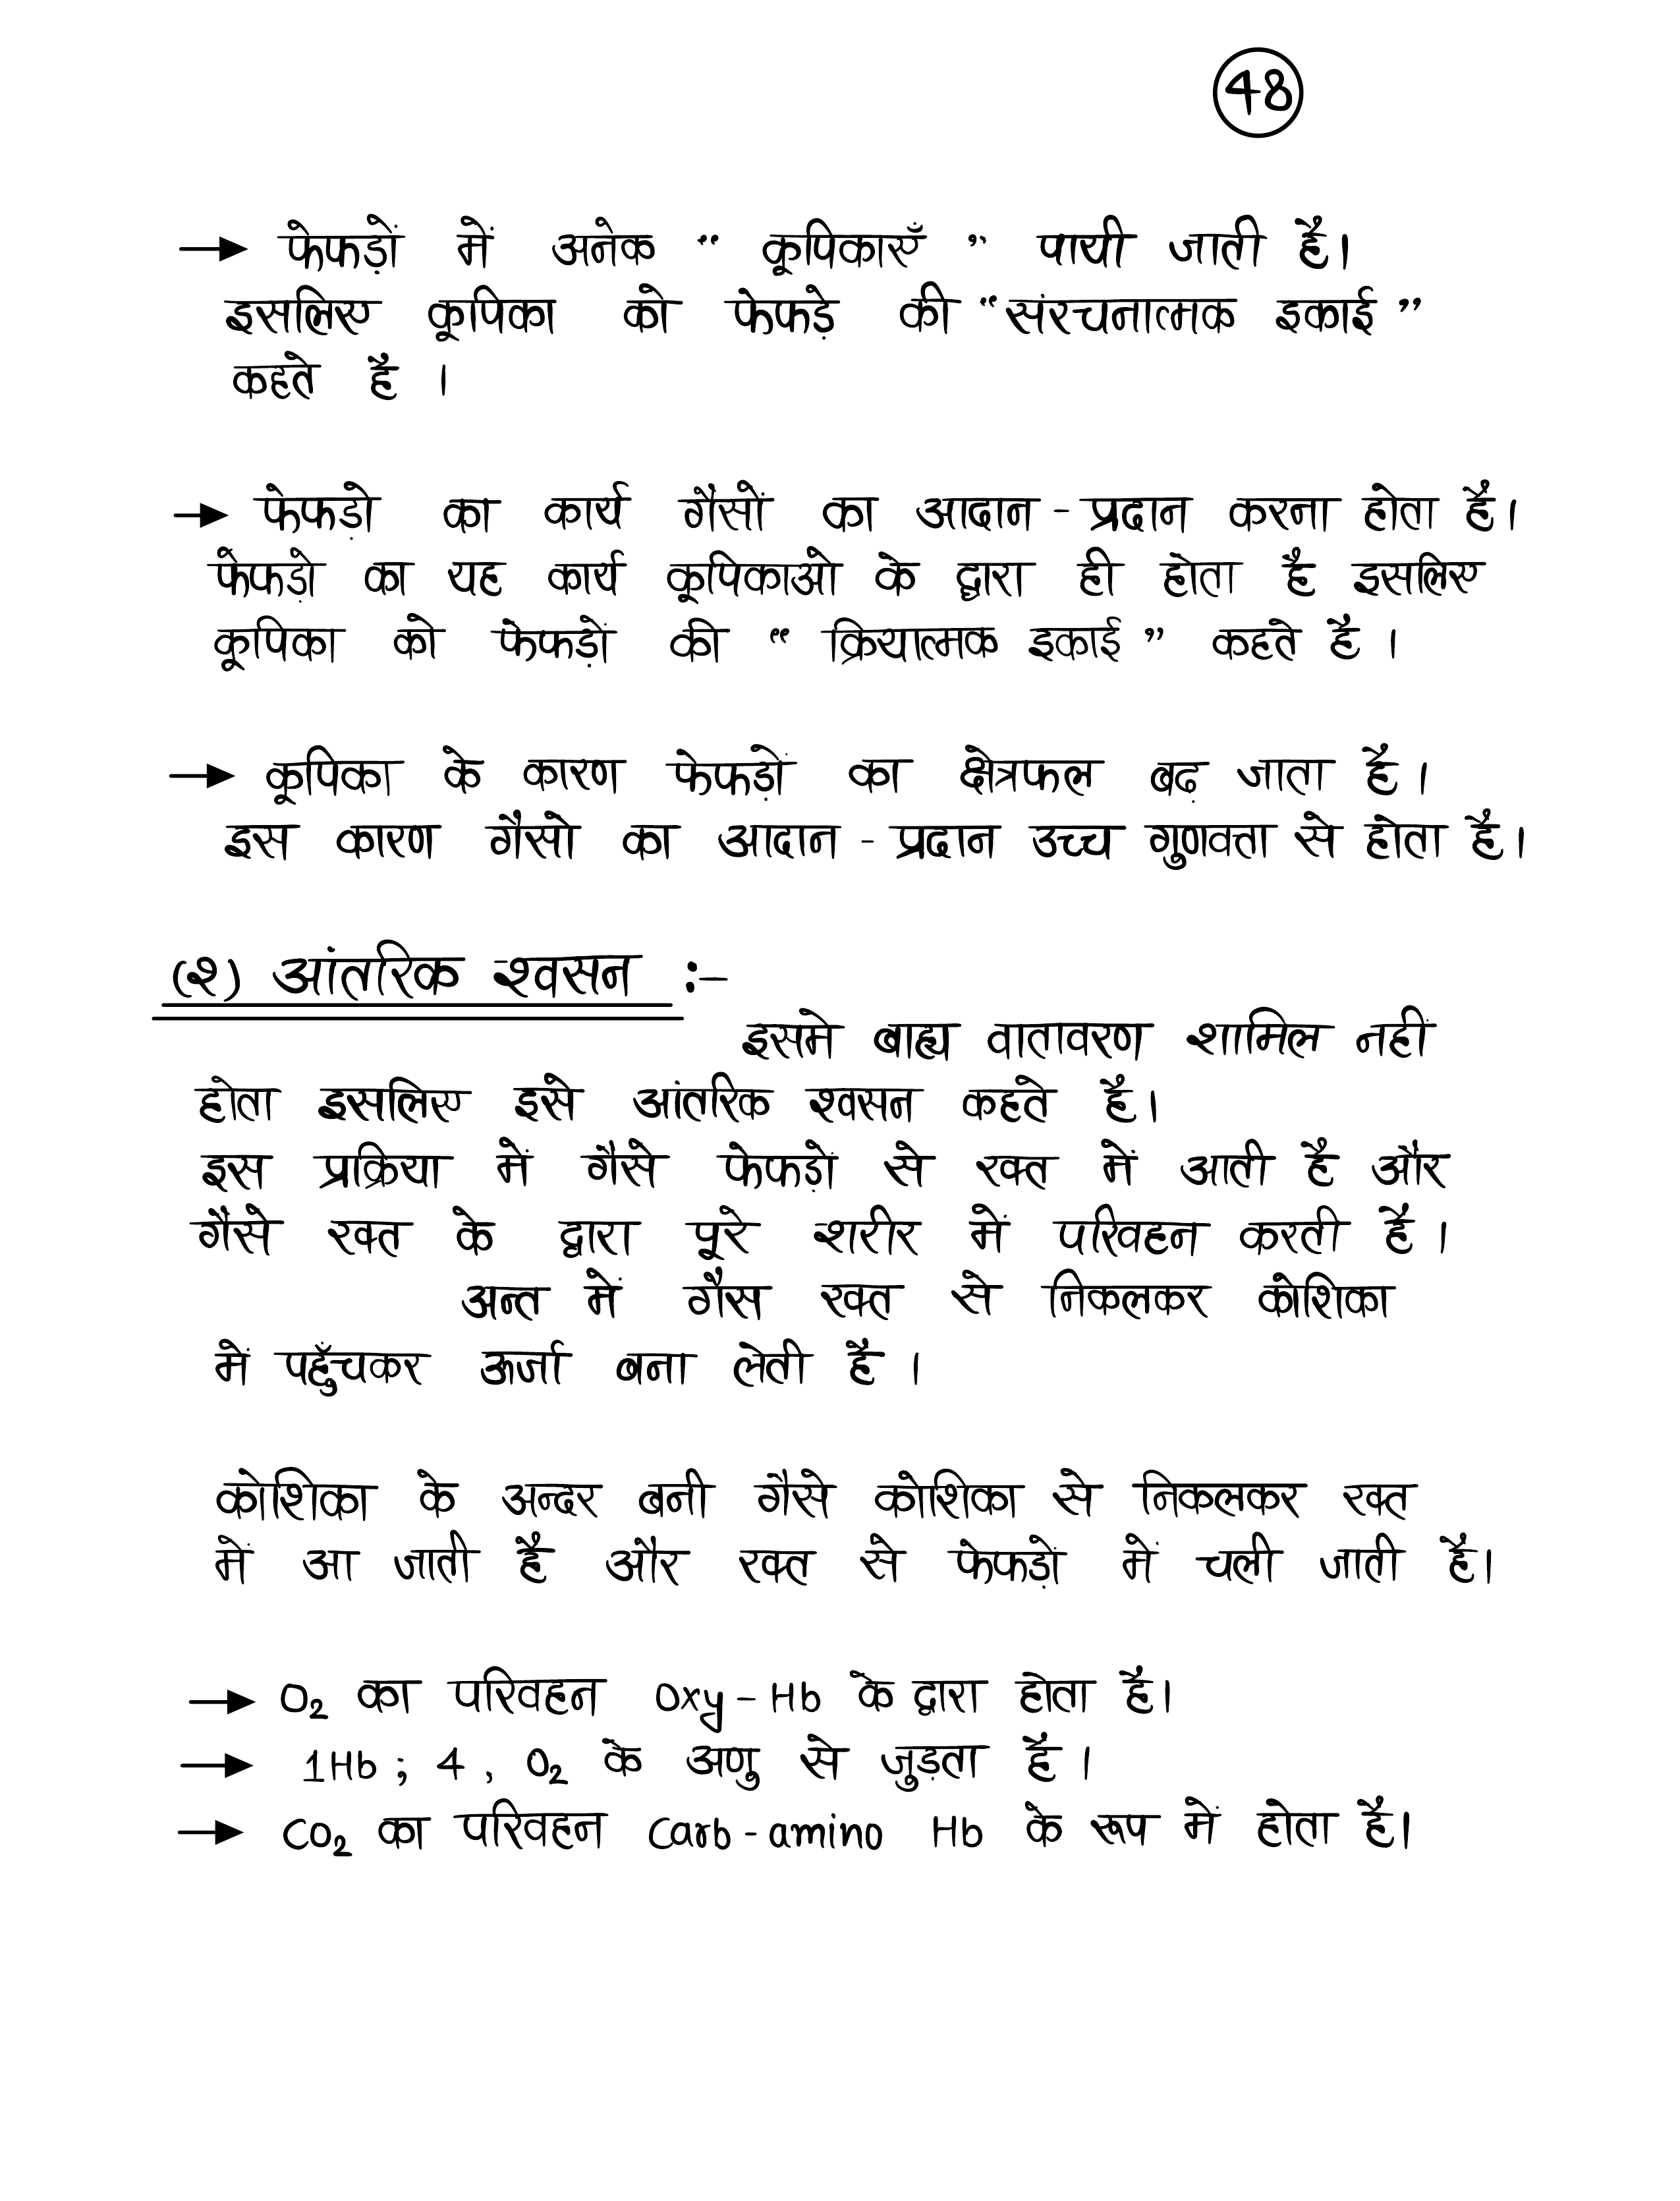 48
→ फेफड़ों में अनेक “ कूपिकाएँ ” पायी जाती है।
इसलिए कूपिका को फेफड़े की “संरचनात्मक इकाई”
कहते है ।
→ फेफड़ो का कार्य गैसों का आदान - प्रदान करना होता है।
फेफड़ो का यह कार्य कूपिकाओ के द्वारा ही होता है इसलिए
कूपिका को फेफड़ों की “ क्रियात्मक इकाई ” कहते है ।
→ कूपिका के कारण फेफड़ों का क्षेत्रफल बढ़ जाता है।
इस कारण गैसो का आदान - प्रदान उच्च गुणवत्ता से होता है।
(२) आंतरिक श्वसन :-
इसमे बाह्य वातावरण शामिल नही
होता इसलिए इसे आंतरिक श्वसन कहते है।
इस प्रक्रिया में गैसे फेफड़ो से रक्त में आती है और
गैसे रक्त के द्वारा पूरे शरीर में परिवहन करती है ।
अन्त में गैस रक्त से निकलकर कोशिका
में पहुँचकर ऊर्जा बना लेती है ।
कोशिका के अन्दर बनी गैसे कोशिका से निकलकर रक्त
में आ जाती है और रक्त से फेफड़ो में चली जाती है।
→ O₂ का परिवहन Oxy - Hb के द्वारा होता है।
→ 1Hb ; 4 , O₂ के अणु से जुड़ता है ।
→ CO₂ का परिवहन Carb - amino Hb के रूप में होता है।